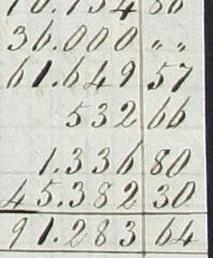 36.000 " "
61.649 57
532 66
1.336 80
45.382 30
91.283 64